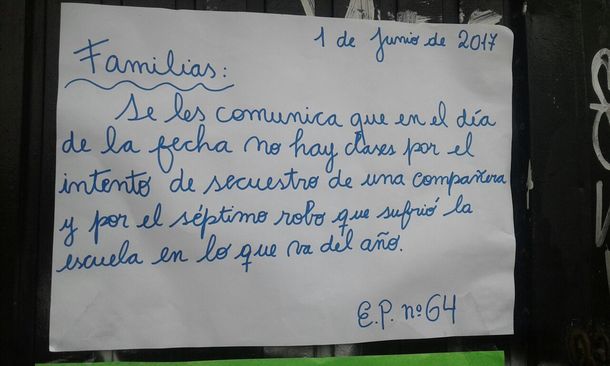 1 de Junio de 2017
Familias:
Se les comunica que en el día
de la fecha no hay clases por el
intento de secuestro de una compañera
y por el séptimo robo que sufrió la
escuela en lo que va del año.
E.P. nº 64